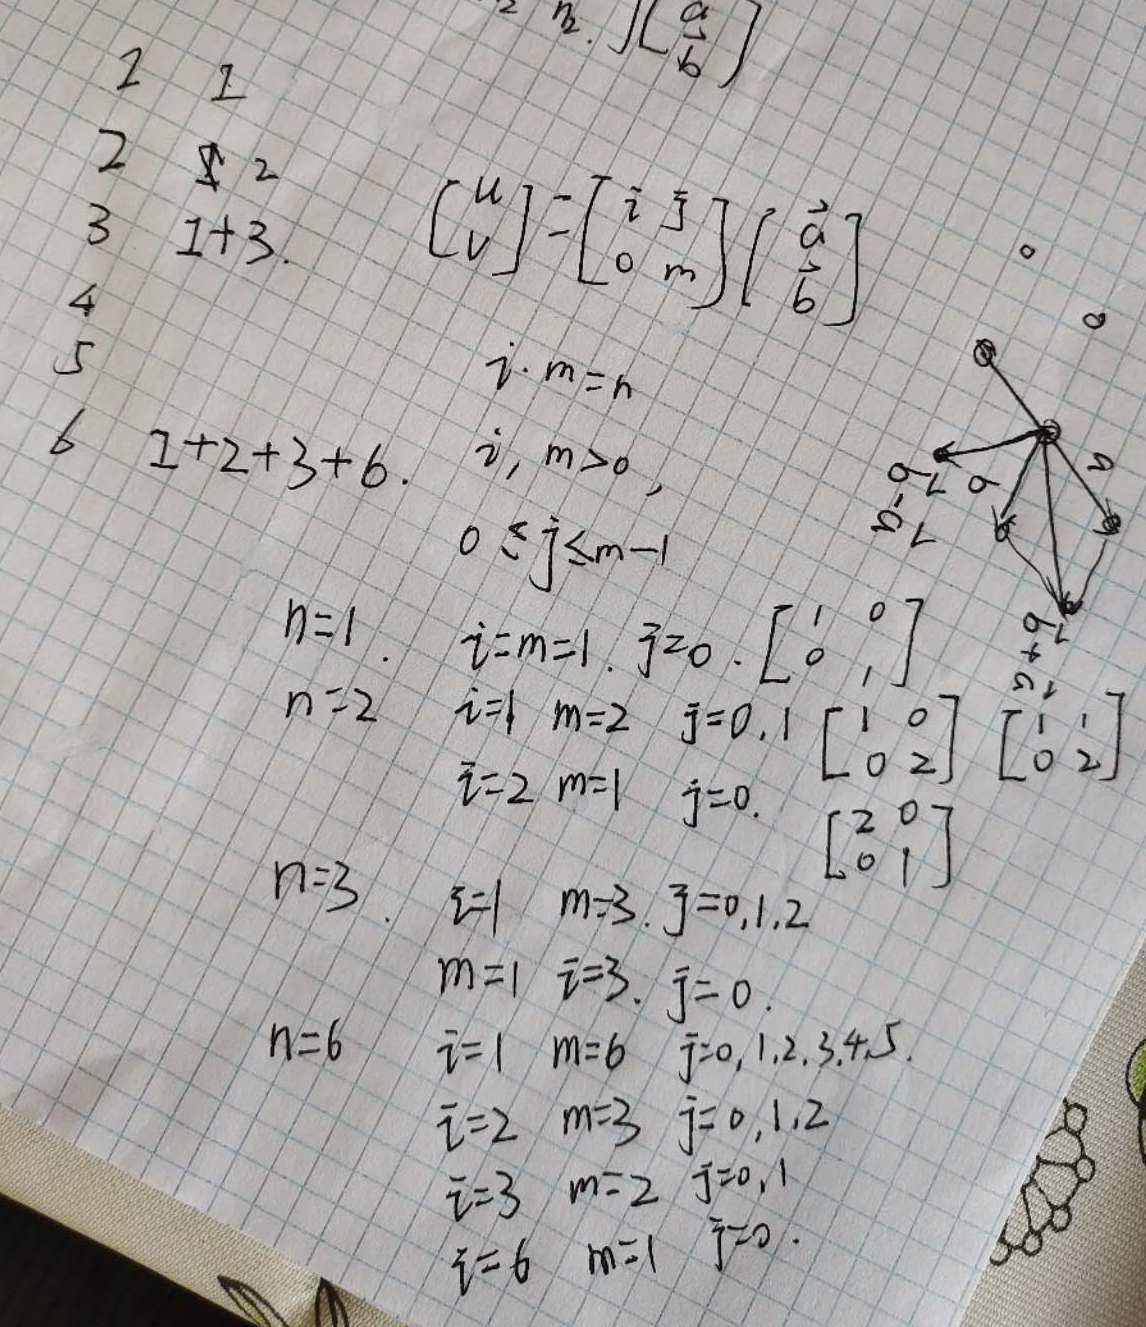 [a⃗
b⃗]
1 1
2 2
3 1+3.
4
5
6 1+2+3+6.
[u
v] = [i j
0 m] [a⃗
b⃗]
i·m=n
i, m>0,
0≤j≤m-1
a
b
b-a
b+a
n=1. i=m=1. j=0. [1 0
0 1]
n=2 i=1 m=2 j=0,1 [1 0
0 2] [1 1
0 2]
i=2 m=1 j=0. [2 0
0 1]
n=3. i=1 m=3. j=0,1,2
m=1 i=3. j=0.
n=6 i=1 m=6 j=0,1,2,3,4,5.
i=2 m=3 j=0,1,2
i=3 m=2 j=0,1
i=6 m=1 j=0.